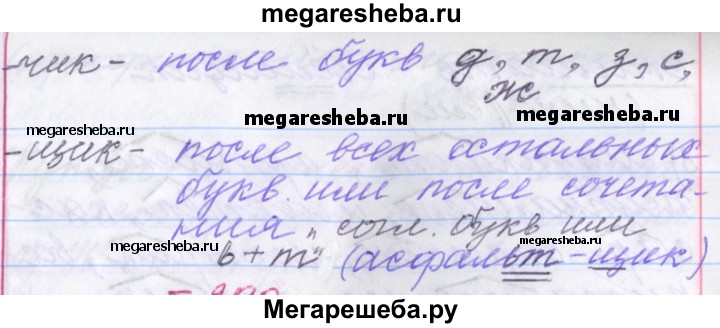 megaresheba.ru
-чик- после букв д, т, з, с,
ж
megaresheba.ru megaresheba.ru
megaresheba.ru megaresheba.ru
-щик- после всех остальных
букв или после сочета-
ния „согл. букв или
megaresheba.ru megaresheba.ru
ь+т" (асфальт-щик)
Мегарешеба.ру